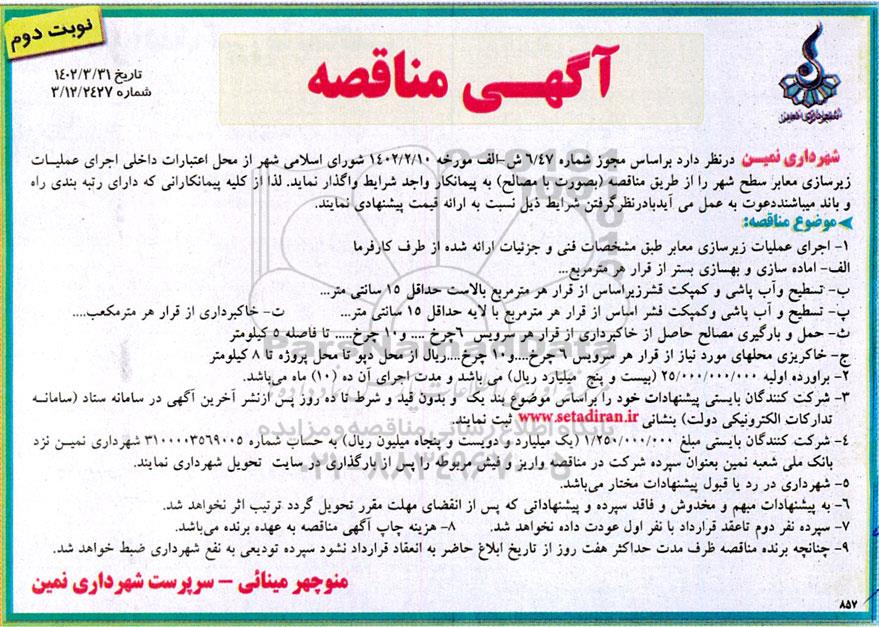 نوبت دوم
آگهی مناقصه
تاریخ ۱۴۰۲/۳/۳۱
شماره ۳/۱۲/۲۴۲۷
شهرداری نمین
شهرداری نمیـن درنظر دارد براساس مجوز شماره ۶/۴۷ ش-الف مورخه ۱۴۰۲/۲/۱۰ شورای اسلامی شهر از محل اعتبارات داخلی اجرای عملیـات
زیرسازی معابر سطح شهر را از طریق مناقصه (بصورت با مصالح) به پیمانکار واجد شرایط واگذار نماید. لذا از کلیه پیمانکارانی که دارای رتبه بندی راه
و باند میباشنددعوت به عمل می آیدبادرنظرگرفتن شرایط ذیل نسبت به ارائه قیمت پیشنهادی نمایند.
موضوع مناقصه:
۱- اجرای عملیات زیرسازی معابر طبق مشخصات فنی و جزئیات ارائه شده از طرف کارفرما
الف- اماده سازی و بهسازی بستر از قرار هر مترمربع...
ب- تسطیح وآب پاشی و کمپکت قشرزیراساس از قرار هر مترمربع بالاست حداقل ۱۵ سانتی متر...
پ- تسطیح و آب پاشی وکمپکت فشر اساس از قرار هر مترمربع با لایه حداقل ۱۵ سانتی متر... ت- خاکبرداری از قرار هر مترمکعب....
ث- حمل و بارگیری مصالح حاصل از خاکبرداری از قرار هر سرویس ۶چرخ .... و۱۰ چرخ.... تا فاصله ۵ کیلومتر
ج- خاکریزی محلهای مورد نیاز از قرار هر سرویس ۶ چرخ....و۱۰ چرخ....ریال از محل دپو تا محل پروژه تا ۸ کیلومتر
۲- براورده اولیه ۲۵/۰۰۰/۰۰۰/۰۰۰ (بیست و پنج میلیارد ریال) می باشد و مدت اجرای آن ده (۱۰) ماه می‌باشد.
۳- شرکت کنندگان بایستی پیشنهادات خود را براساس موضوع بند یک و بدون قید و شرط تا ده روز پس ازنشر آخرین آگهی در سامانه ستاد (سامانـه
تدارکات الکترونیکی دولت) بنشانی www.setadiran.ir ثبت نمایند.
۴- شرکت کنندگان بایستی مبلغ ۱/۲۵۰/۰۰۰/۰۰۰ (یک میلیارد و دویست و پنجاه میلیون ریال) به حساب شماره ۳۱۰۰۰۰۳۵۶۹۰۰۵ شهرداری نمیـن نزد
بانک ملی شعبه نمین بعنوان سپرده شرکت در مناقصه واریز و فیش مربوطه را پس از بارگذاری در سایت تحویل شهرداری نمایند.
۵- شهرداری در رد یا قبول پیشنهادات مختار می‌باشد.
۶- به پیشنهادات مبهم و مخدوش و فاقد سپرده و پیشنهاداتی که پس از انقضای مهلت مقرر تحویل گردد ترتیب اثر نخواهد شد.
۷- سپرده نفر دوم تاعقد قرارداد با نفر اول عودت داده نخواهد شد. ۸- هزینه چاپ آگهی مناقصه به عهده برنده می‌باشد.
۹- چنانچه برنده مناقصه ظرف مدت حداکثر هفت روز از تاریخ ابلاغ حاضر به انعقاد قرارداد نشود سپرده تودیعی به نفع شهرداری ضبط خواهد شد.
منوچهر مینائی - سرپرست شهرداری نمین
۸۵۷
ParsNamadData
پایگاه اطلاع رسانی مناقصه و مزایده
۰۲۱-۸۸۳۴۹۶۷۰-۵